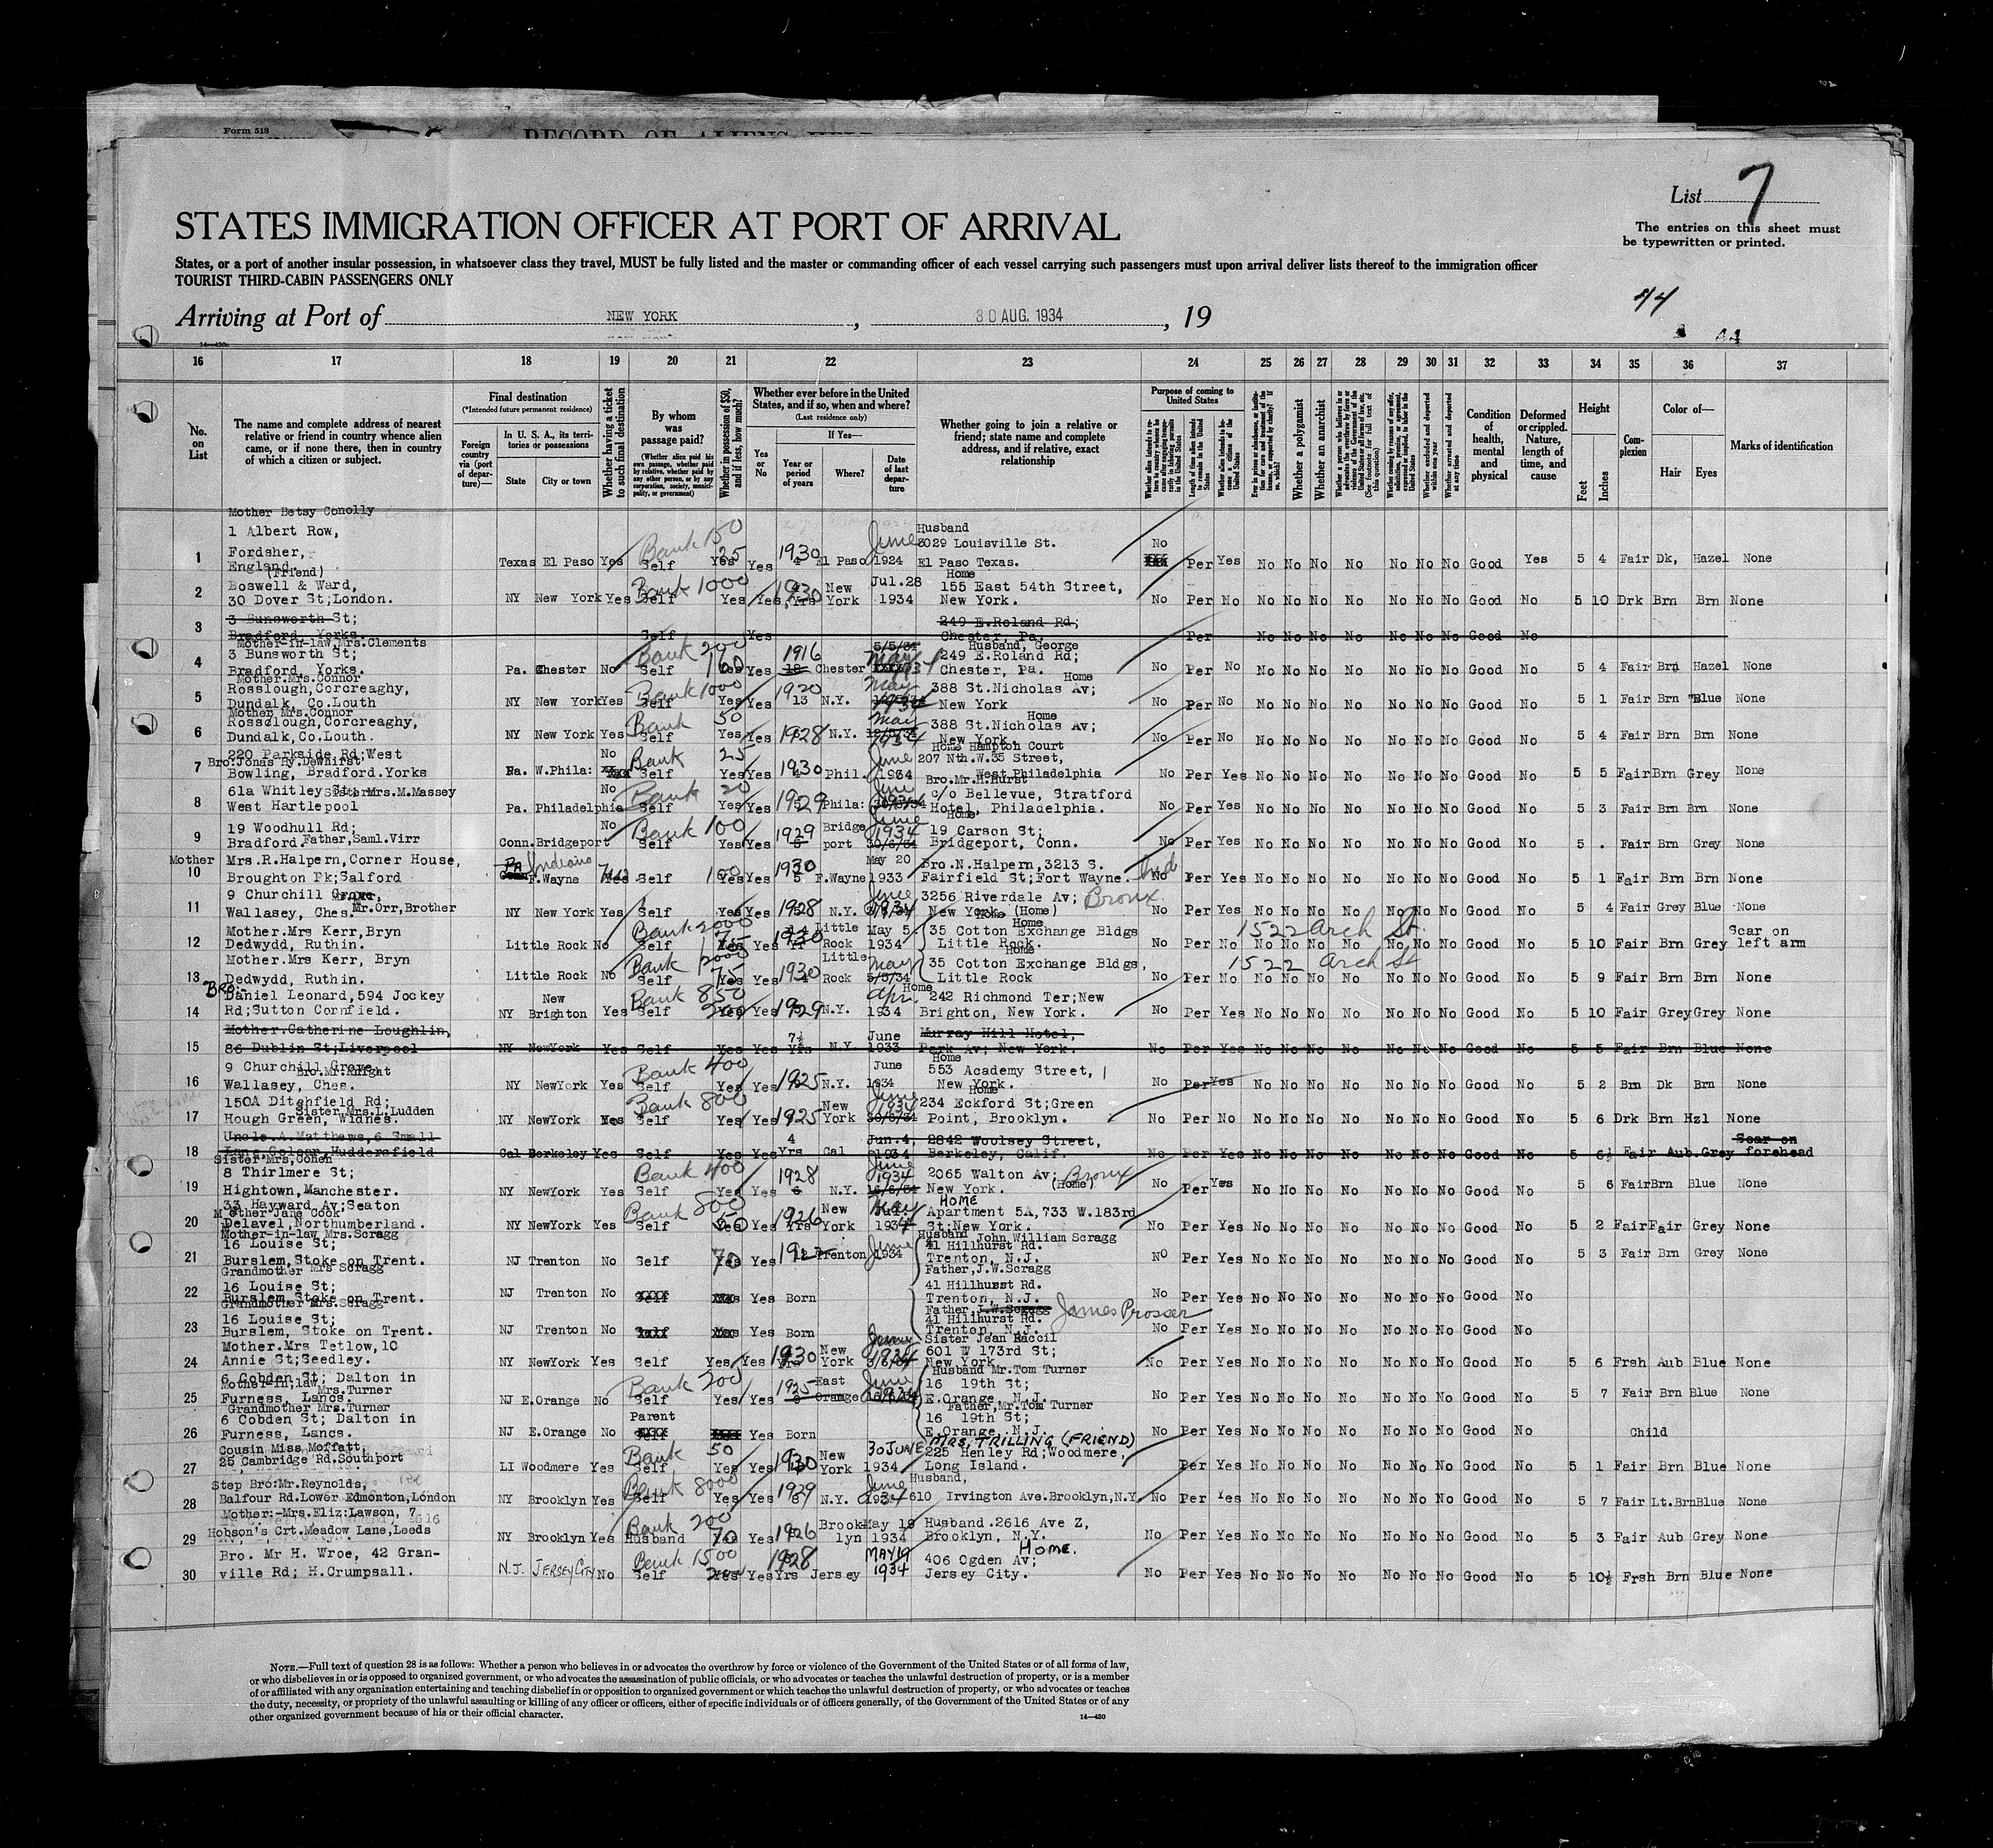 Form 518
RECORD OF ALIENS HELD
List 7
STATES IMMIGRATION OFFICER AT PORT OF ARRIVAL
The entries on this sheet must
be typewritten or printed.
States, or a port of another insular possession, in whatsoever class they travel, MUST be fully listed and the master or commanding officer of each vessel carrying such passengers must upon arrival deliver lists thereof to the immigration officer
TOURIST THIRD-CABIN PASSENGERS ONLY
44
Arriving at Port of NEW YORK, 30 AUG. 1934, 19
16 17 18 19 20 21 22 23 24 25 26 27 28 29 30 31 32 33 34 35 36 37
No. on List
The name and complete address of nearest relative or friend in country whence alien came, or if none there, then in country of which a citizen or subject.
Final destination
(*Intended future permanent residence)
Foreign country via (port of departure)—
In U. S. A., its territories or possessions
State
City or town
Whether having a ticket to such final destination
By whom was passage paid?
(Whether alien paid his own passage, whether paid by relative, whether paid by any other person, or by any corporation, society, municipality, or government)
Whether in possession of $50, and if less, how much?
Whether ever before in the United States, and if so, when and where?
(Last residence only)
Yes or No
If Yes—
Year or period of years
Where?
Date of last departure
Whether going to join a relative or friend; state name and complete address, and if relative, exact relationship
Purpose of coming to United States
Length of time alien intends to remain in the United States
Whether alien intends to become a citizen of the United States
Whether a polygamist
Whether an anarchist
Whether excluded and deported within one year
Whether arrested and deported at any time
Condition of health, mental and physical
Deformed or crippled. Nature, length of time, and cause
Height
Feet
Inches
Complexion
Color of—
Hair
Eyes
Marks of identification
Mother Betsy Conolly
1 Albert Row,
Husband
Fordsher,
3029 Louisville St.
1 England. Texas El Paso Yes Bank 150 Self Yes 25 Yes 1930 El Paso June 1924 El Paso Texas. No Per Yes No No No No No No No Good Yes 5 4 Fair Dk, Hazel None
(Friend)
Boswell & Ward, Jul.28 Home 155 East 54th Street,
2 30 Dover St;London. NY New York Yes Bank 1000 Self Yes Yes 1930 New York 1934 New York. No Per No No No No No No No No Good No 5 10 Drk Brn Brn None
3 Bunsworth St; 249 E.Roland Rd;
3 Bradford. Yorks. Self Yes Chester, Pa. Per No No No No No No No Good No
Mother-in-law,Mrs.Clements Husband, George
3 Bunsworth St; 5/5/34 249 E.Roland Rd;
4 Bradford. Yorks. Pa. Chester No Bank 200 Self 100 Yes 1916 Chester May Chester, Pa. No Per No No No No No No No No Good No 5 4 Fair Brn Hazel None
Mother.Mrs.Connor Home
Rosslough,Corcreaghy, 388 St.Nicholas Av;
5 Dundalk, Co.Louth NY New York Yes Bank 1000 Self Yes Yes 1920 13 N.Y. May 1934 New York No Per No No No No No No No No Good No 5 1 Fair Brn Blue None
Mother Mrs.Connor Home
Rosslough,Corcreaghy, 388 St.Nicholas Av;
6 Dundalk,Co.Louth. NY New York Yes Bank 50 Self Yes Yes 1928 N.Y. May 1934 New York. No Per No No No No No No No No Good No 5 4 Fair Brn Brn None
220 Parkside Rd;West Home Hampton Court
Bro:Jonas Hy.Dewhirst 207 Nth.W.35 Street,
7 Bowling, Bradford.Yorks Pa. W.Phila: No Bank 25 Self Yes Yes 1930 Phil. June 1934 West Philadelphia No Per Yes No No No No No No No Good No 5 5 Fair Brn Grey None
61a Whitley St; Sister Mrs.M.Massey Bro.Mr.H.Hurst c/o Bellevue, Stratford
8 West Hartlepool Pa. Philadelphia No Bank 20 Self Yes Yes 1929 Phila: June Hotel, Philadelphia. No Per Yes No No No No No No No Good No 5 3 Fair Brn Brn None
19 Woodhull Rd; Home, 19 Carson St;
9 Bradford. Father,Saml.Virr Conn.Bridgeport No Bank 100 Self Yes Yes 1929 Bridgeport June 1934 30/6/34 Bridgeport, Conn. No Per Yes No No No No No No No Good No 5 . Fair Brn Grey None
Mother Mrs.R.Halpern,Corner House, May 20 Bro.N.Halpern,3213 S.
10 Broughton Pk;Salford Indiana F.Wayne Self 100 Yes Yes 1930 5 F.Wayne 1933 Fairfield St;Fort Wayne. Ind No Per Yes No No No No No No No Good No 5 1 Fair Brn Brn None
9 Churchill Grove, 3256 Riverdale Av; Bronx.
11 Wallasey, Ches. Mr.Orr,Brother NY New York Yes Self Yes Yes 1928 N.Y. June 1934 New York. (Home) No Per Yes No No No No No No No Good No 5 4 Fair Grey Blue None
Mother.Mrs Kerr, Bryn Home 35 Cotton Exchange Bldgs 1522 Arch St. Scar on
12 Dedwydd, Ruthin. Little Rock No Bank 2000 Self 75 Yes Yes 1930 Little Rock May 5 1934 Little Rock. No Per No No No No No No No No Good No 5 10 Fair Brn Grey left arm
Mother.Mrs Kerr, Bryn Home 35 Cotton Exchange Bldgs, 1522 Arch St
13 Dedwydd, Ruthin. Little Rock No Bank 1000 Self 75 Yes Yes 1930 Little Rock May 5/5/34 Little Rock No Per No No No No No No No No Good No 5 9 Fair Brn Brn None
BRO:- Daniel Leonard,594 Jockey Home 242 Richmond Ter;New
14 Rd;Sutton Cornfield. NY New Brighton Yes Bank 850 Self 200 Yes 1929 N.Y. Apr. 1934 Brighton, New York. No Per Yes No No No No No No No Good No 5 10 Fair Grey Grey None
Mother.Catherine Loughlin, 7½ June Murray Hill Hotel,
15 86 Dublin St;Liverpool NY NewYork Yes Self Yes Yes Yrs N.Y. 1933 Park Av; New York. No Per Yes No No No No No No No Good No 5 5 Fair Brn Blue None
9 Churchill Grove Bro.Mr.Knight June Home 553 Academy Street,
16 Wallasey, Ches. NY NewYork Yes Bank 400 Self Yes Yes 1925 N.Y. 1934 New York. No Per Yes No No No No No No No Good No 5 2 Brn Dk Brn None
150A Ditchfield Rd; Sister Mrs.L.Ludden Home 234 Eckford St;Green
17 Hough Green, Widnes. NY NewYork Yes Bank 800 Self Yes Yes 1925 New York June 30/6/34 Point, Brooklyn. No Per No No No No No No No No Good No 5 6 Drk Brn Hzl None
Uncle.A.Matthews,6 Small 4 Jun.4, 2842 Woolsey Street, Scar on
18 Lane.Golcar,Huddersfield Cal Berkeley Yes Self Yes Yes Yrs Cal 1934 Berkeley, Calif. No Per Yes No No No No No No No Good No 5 6½ Fair Aub.Grey forehead
Sister Mrs,Cohen
8 Thirlmere St; 2065 Walton Av; Bronx
19 Hightown,Manchester. NY NewYork Yes Bank 400 Self Yes Yes 1928 N.Y. June 1934 New York. (Home) No Per Yes No No No No No No No Good No 5 6 Fair Brn Blue None
33 Hayward Av;Seaton HOME
Mother Jane Cook Apartment 5A,733 W.183rd
20 Delavel,Northumberland. NY NewYork Yes Bank 800 Self 60 Yes 1926 New York May 1934 St;New York. No Per Yes No No No No No No No Good No 5 2 Fair Fair Grey None
Mother-in-law Mrs.Scragg Husband John William Scragg
16 Louise St; 41 Hillhurst Rd.
21 Burslem,Stoke on Trent. NJ Trenton No Self 70 Yes Trenton June 1934 Trenton, N.J. No Per Yes No No No No No No No Good No 5 3 Fair Brn Grey None
Grandmother Mrs Scragg Father,J.W.Scragg
16 Louise St; 41 Hillhurst Rd.
22 Burslem,Stoke on Trent. NJ Trenton No Yes Born Trenton, N.J. No Per Yes No No No No No No No Good No
Grandmother Mrs.Scragg Father J.W.Scragg James Prosser
16 Louise St; 41 Hillhurst Rd.
23 Burslem, Stoke on Trent. NJ Trenton No Yes Born Trenton, N.J. No Per Yes No No No No No No No Good No
Mother.Mrs Tetlow,10 Sister Jean Raccil 601 W 173rd St;
24 Annie St;Seedley. NY NewYork Yes Self Yes Yes 1930 New York June 1934 New York No Per Yes No No No No No No No Good No 5 6 Frsh Aub Blue None
6 Cobden St; Dalton in Husband Mr.Tom Turner
Mother-in,law Mrs.Turner 16 19th St;
25 Furness, Lancs. NJ E.Orange No Bank 200 Self Yes Yes 1925 East Orange June E.Orange N.J. No Per Yes No No No No No No No Good No 5 7 Fair Brn Blue None
Grandmother Mrs.Turner Father,Mr.Tom Turner
6 Cobden St; Dalton in Parent 16 19th St;
26 Furness, Lancs. NJ E.Orange No Yes Born E.Orange N.J. No Per Yes No No No No No No No Good No Child
Cousin Miss Moffatt, 30 JUNE MRS, TRILLING (FRIEND)
25 Cambridge Rd.Southport 225 Henley Rd;Woodmere,
27 LI Woodmere Yes Bank 50 Self Yes Yes 1930 New York 1934 Long Island. Per Yes No No No No No No No Good No 5 1 Fair Brn Blue None
Step Bro:Mr.Reynolds, Husband,
28 Balfour Rd.Lower Edmonton,London NY Brooklyn Yes Bank 8000 Self Yes Yes 1929 N.Y. June 1934 610 Irvington Ave.Brooklyn,N.Y. No Per Yes No No No No No No No Good No 5 7 Fair Lt.Brn Blue None
Mother:-Mrs.Eliz:Lawson, 7 Husband.2616 Ave Z,
29 Hobson's Crt.Meadow Lane,Leeds NY Brooklyn Yes Bank 200 Husband 70 Yes 1926 Brooklyn May 19 1934 Brooklyn, N.Y. No Per Yes No No No No No No No Good No 5 3 Fair Aub Grey None
Bro. Mr H. Wroe, 42 Gran- MAY 19 406 Ogden Av; HOME.
30 ville Rd; H.Crumpsall. N.J. JERSEY CITY No Bank 1500 Self 200 Yes 1928 Yrs Jersey 1934 Jersey City. No Per Yes No No No No No No No Good No 5 10½ Frsh Brn Blue None
NOTE.—Full text of question 28 is as follows: Whether a person who believes in or advocates the overthrow by force or violence of the Government of the United States or of all forms of law,
or who disbelieves in or is opposed to organized government, or who advocates the assassination of public officials, or who advocates or teaches the unlawful destruction of property, or is a member
of or affiliated with any organization entertaining and teaching disbelief in or opposition to organized government or which teaches the unlawful destruction of property, or who advocates or teaches
the duty, necessity, or propriety of the unlawful assaulting or killing of any officer or officers, either of specific individuals or of officers generally, of the Government of the United States or of any
other organized government because of his or their official character.
14—430